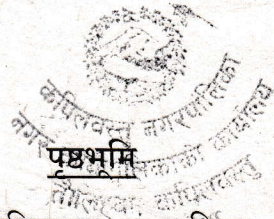 कपिलवस्तु नगरपालिका
नगर कार्यपालिकाको कार्यालय
पृष्ठभूमि
तौलिहवा, कपिलवस्तु